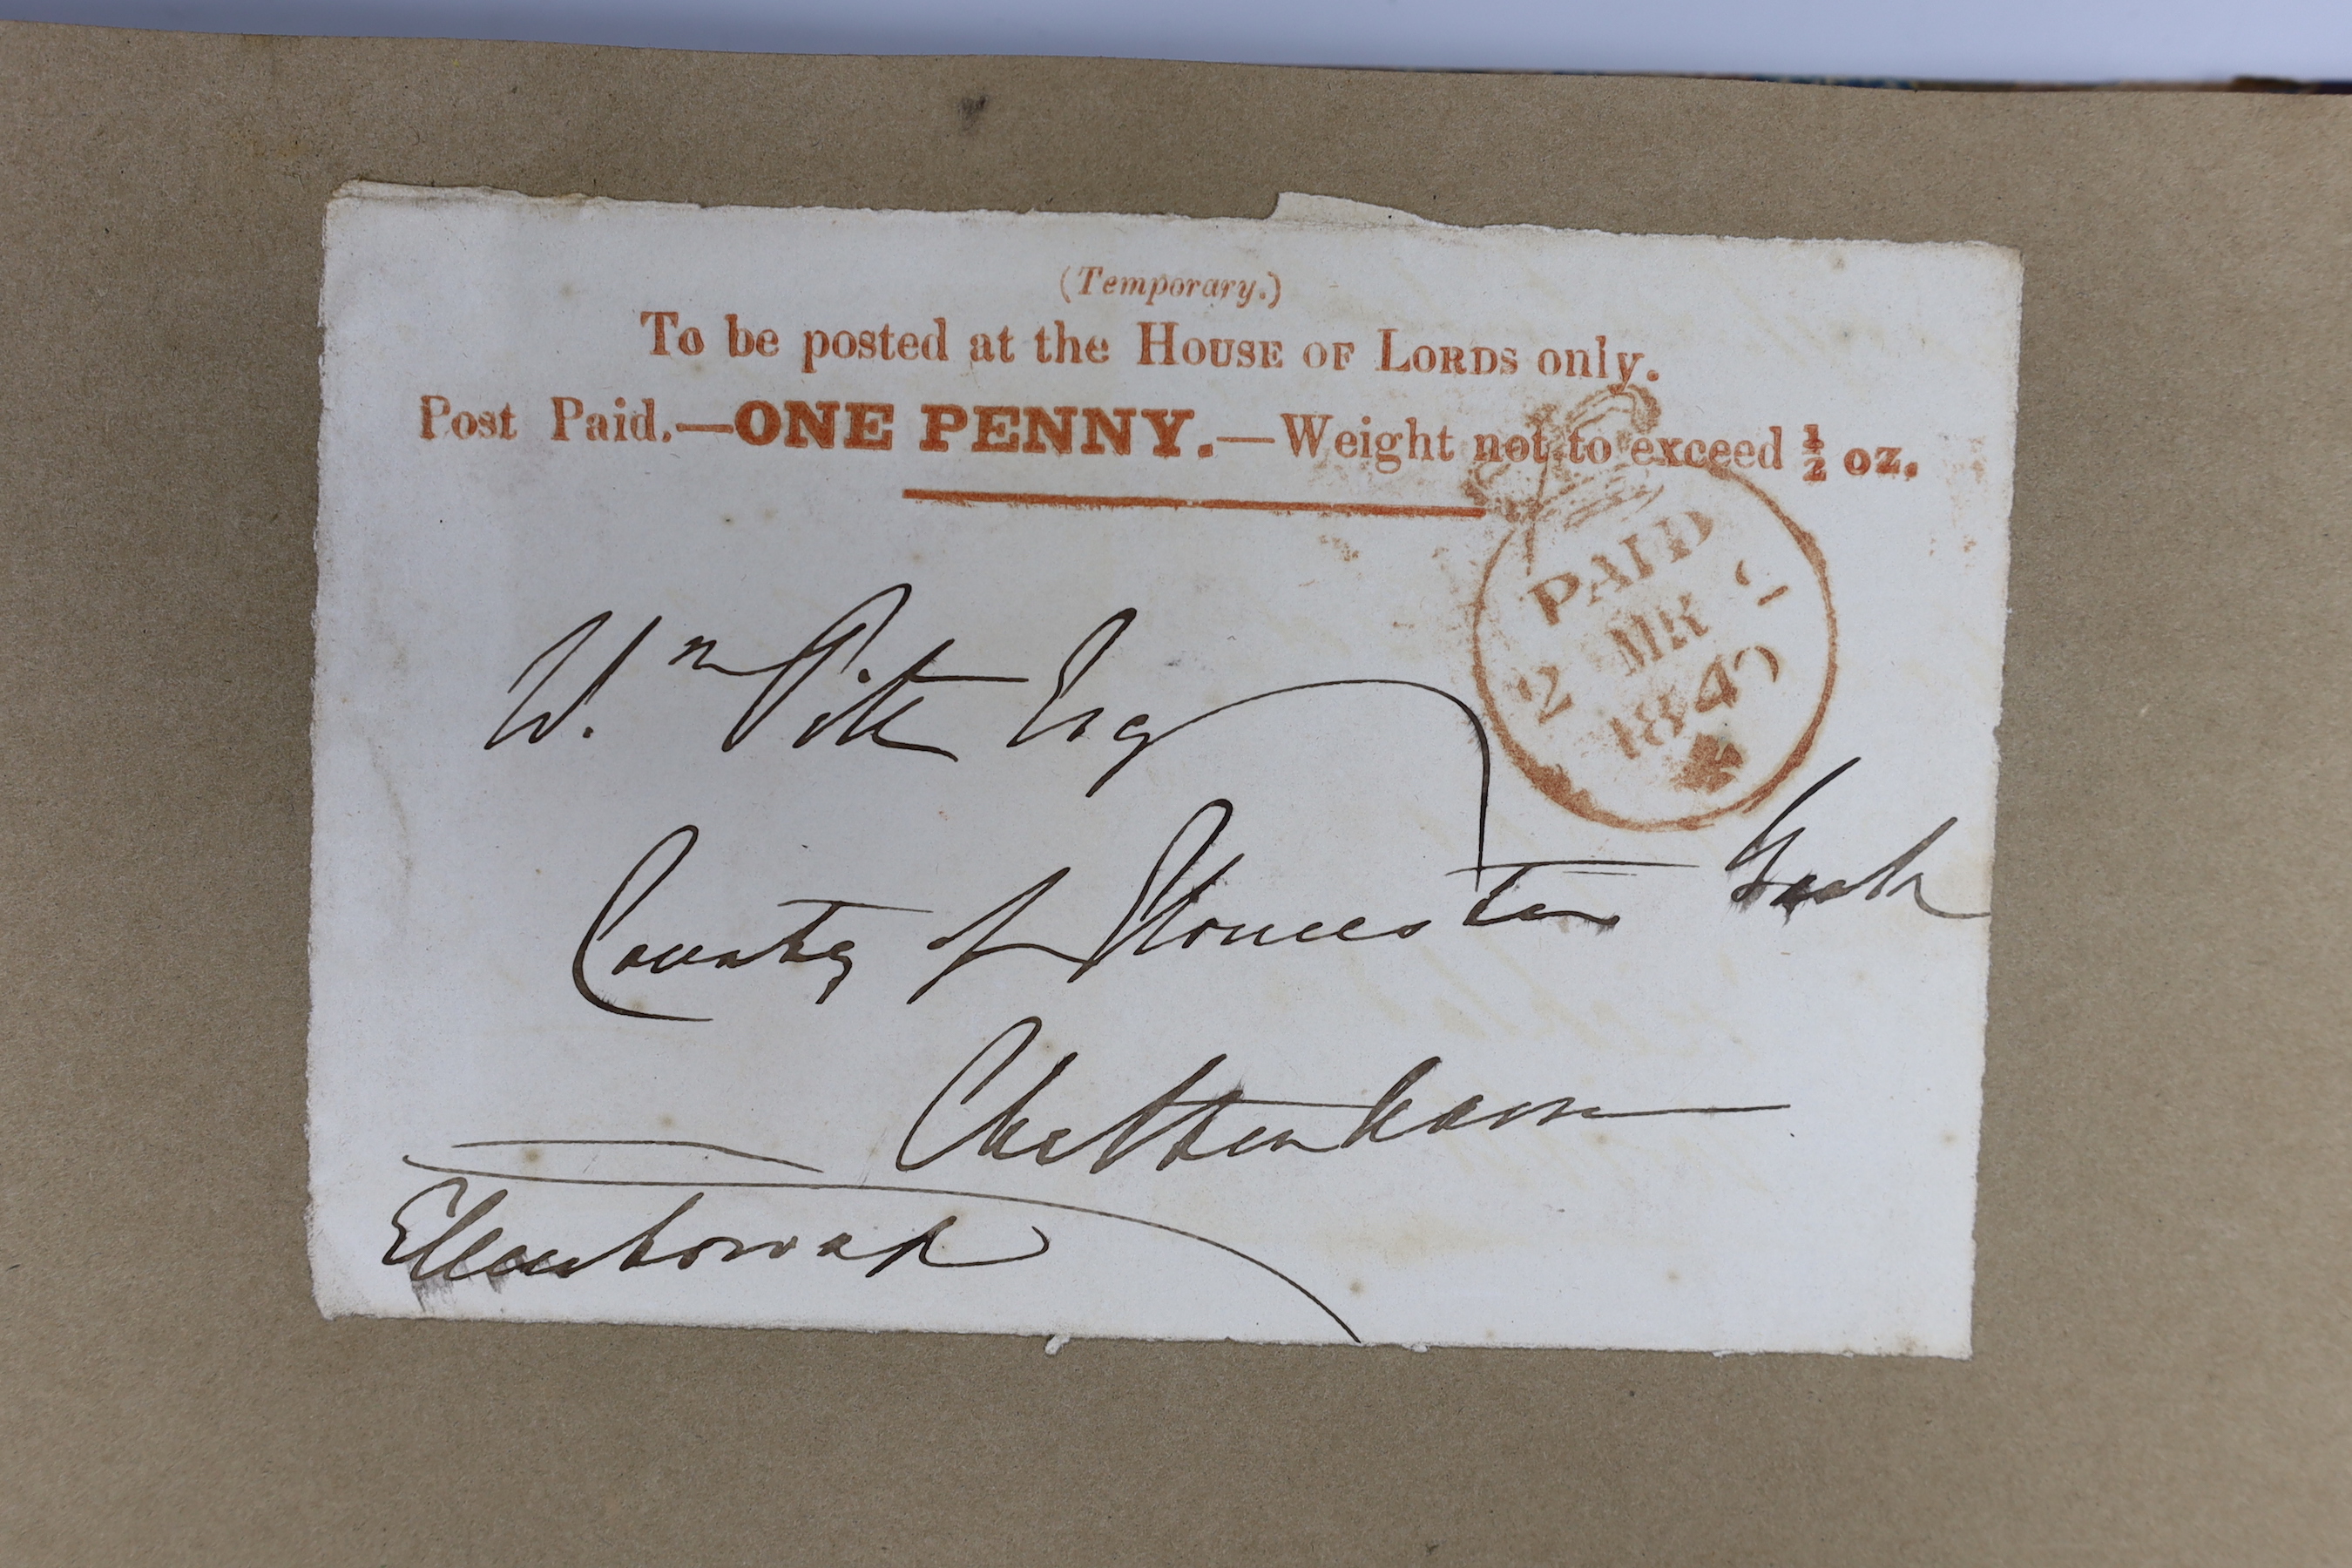 (Temporary.)
To be posted at the HOUSE OF LORDS only.
Post Paid.—ONE PENNY.—Weight not to exceed ½ oz.
PAID
2 MR 2
1840
Wm Pitt Esq
County of Gloucester Bank
Cheltenham
Ellenborough